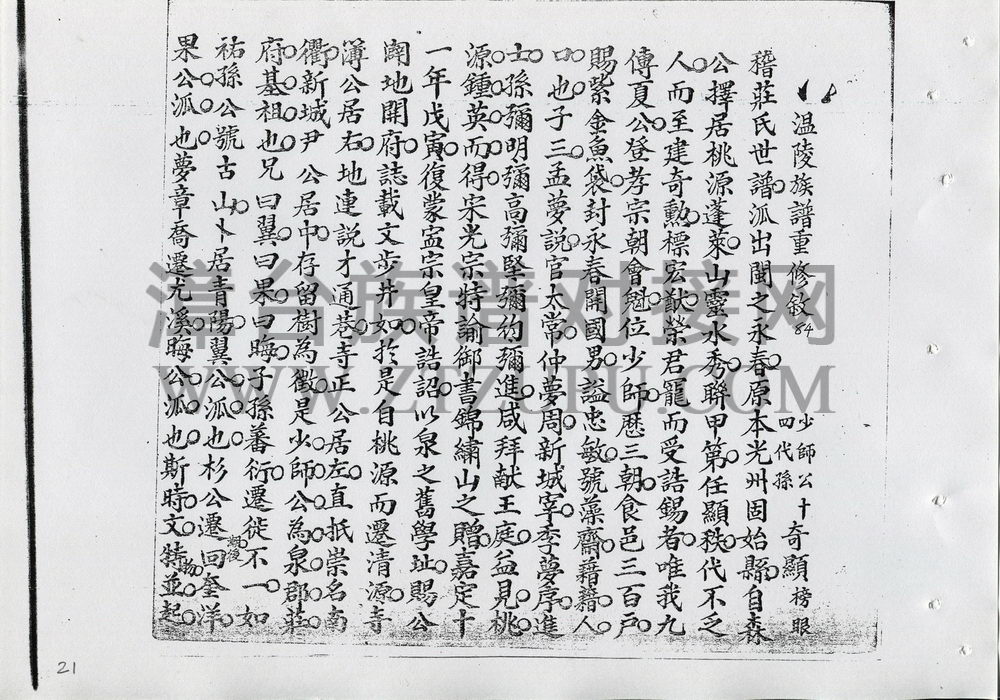 温陵族譜重修敘 84
少師公十四代孫 奇顯 榜眼
稽莊氏世譜派出閩之永春原本光州固始縣自森
公擇居桃源蓬萊山靈水秀聯甲第任顯秩代不乏
人而至建奇勳標宏猷榮君寵而受誥錫者唯我九
傳夏公登孝宗朝會魁位少師歷三朝食邑三百戶
賜紫金魚袋封永春開國男謚忠敏號藻齋藉藉人
口也子三孟夢說官太常仲夢周新城宰季夢序進
士孫彌明彌高彌堅彌約彌進咸拜献王庭益見桃
源鍾英而得宋光宗特諭御書錦繡山之贈嘉定十
一年戊寅復蒙寍宗皇帝誥詔以泉之舊學址賜公
闢地開府誌載文步井如於是自桃源而遷清源寺
簿公居右地連説才通巷寺正公居左直抵崇名南
衢新城尹 公居中存留樹為徵是少師公為泉郡莊
府基祖也兄曰翼曰果曰晦子孫蕃衍遷徙不一如
祐孫公號古山卜居青陽翼公派也杉公遷回奎洋
果公派也夢章喬遷尤溪晦公派也斯時文物並起
潮後
漳台族谱对接网
WWW.ZTZUPU.COM
21